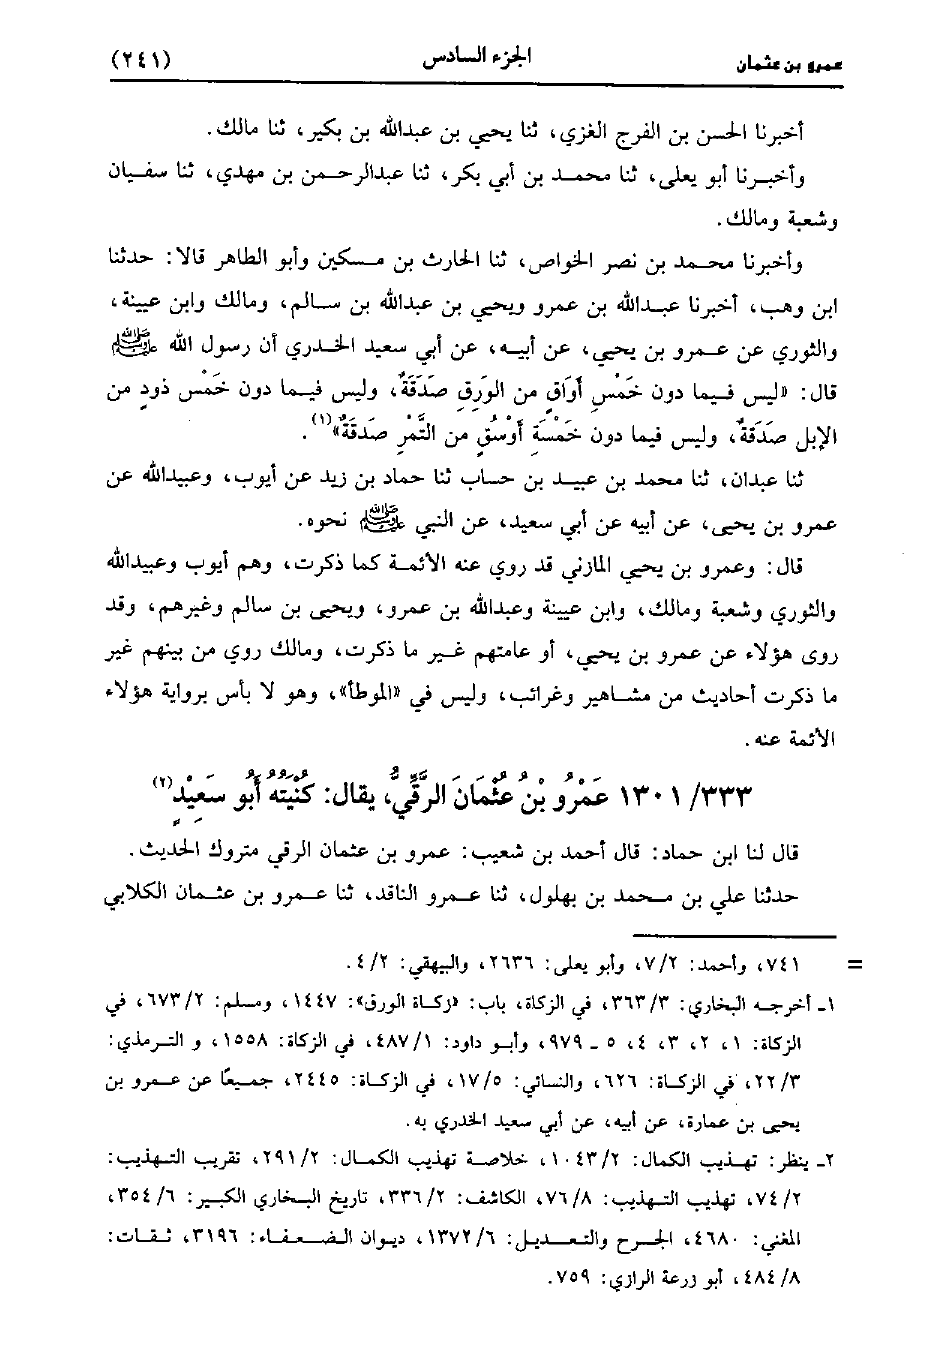 عمرو بن عثمان الجزء السادس (٢٤١)
أخبرنا الحسن بن الفرج الغزي، ثنا يحيي بن عبدالله بن بكير، ثنا مالك.
وأخبرنا أبو يعلى، ثنا محمد بن أبي بكر، ثنا عبدالرحمن بن مهدي، ثنا سفيان
وشعبة ومالك.
وأخبرنا محمد بن نصر الخواص، ثنا الحارث بن مسكين وأبو الطاهر قالا: حدثنا
ابن وهب، أخبرنا عبدالله بن عمرو ويحيي بن عبدالله بن سالم، ومالك وابن عيينة،
والثوري عن عمرو بن يحيى، عن أبيه، عن أبي سعيد الخدري أن رسول الله ﷺ
قال: «ليس فيما دون خَمْسِ أَوَاقٍ من الوَرِقِ صَدَقَةٌ، وليس فيما دون خَمْسِ ذود من
الإبل صَدَقَةٌ، وليس فيما دون خَمْسَةِ أَوْسُقٍ من التَّمْرِ صَدَقَةٌ»(١).
ثنا عبدان، ثنا محمد بن عبيد بن حساب ثنا حماد بن زيد عن أيوب، وعبيدالله عن
عمرو بن يحيى، عن أبيه عن أبي سعيد، عن النبي ﷺ نحوه.
قال: وعمرو بن يحيى المازني قد روي عنه الأئمة كما ذكرت، وهم أيوب وعبيدالله
والثوري وشعبة ومالك، وابن عيينة وعبدالله بن عمرو، ويحيى بن سالم وغيرهم، وقد
روى هؤلاء عن عمرو بن يحيى، أو عامتهم غير ما ذكرت، ومالك روي من بينهم غير
ما ذكرت أحاديث من مشاهير وغرائب، وليس في «الموطأ»، وهو لا بأس برواية هؤلاء
الأئمة عنه.
٣٣٣/ ١٣٠١ عَمْرُو بْنُ عُثْمَانَ الرقِّيُّ، يقال: كُنْيَتُهُ أَبُو سَعِيْدٍ(٢)
قال لنا ابن حماد: قال أحمد بن شعيب: عمرو بن عثمان الرقي متروك الحديث.
حدثنا علي بن محمد بن بهلول، ثنا عمرو الناقد، ثنا عمرو بن عثمان الكلابي
= ٧٤١، وأحمد: ٧/٢، وأبو يعلى: ٢٦٣٦، والبيهقي: ٤/٢.
١ـ أخرجه البخاري: ٣٦٣/٣، في الزكاة، باب: «زكاة الورق»: ١٤٤٧، ومسلم: ٦٧٣/٢، في
الزكاة: ١، ٢، ٣، ٤، ٥ ـ ٩٧٩، وأبو داود: ٤٨٧/١، في الزكاة: ١٥٥٨، و الترمذي:
٢٢/٣، في الزكاة: ٦٢٦، والنسائي: ١٧/٥، في الزكاة: ٢٤٤٥، جميعًا عن عمرو بن
يحيى بن عمارة، عن أبيه، عن أبي سعيد الخدري به.
٢ـ ينظر: تهذيب الكمال: ١٠٤٣/٢، خلاصة تهذيب الكمال: ٢٩١/٢، تقريب التهذيب:
٧٤/٢، تهذيب التهذيب: ٧٦/٨، الكاشف: ٣٣٦/٢، تاريخ البخاري الكبير: ٣٥٤/٦،
المغني: ٤٦٨٠، الجرح والتعديل: ١٣٧٢/٦، ديوان الضعفاء: ٣١٩٦، ثقات:
٤٨٤/٨، أبو زرعة الرازي: ٧٥٩.